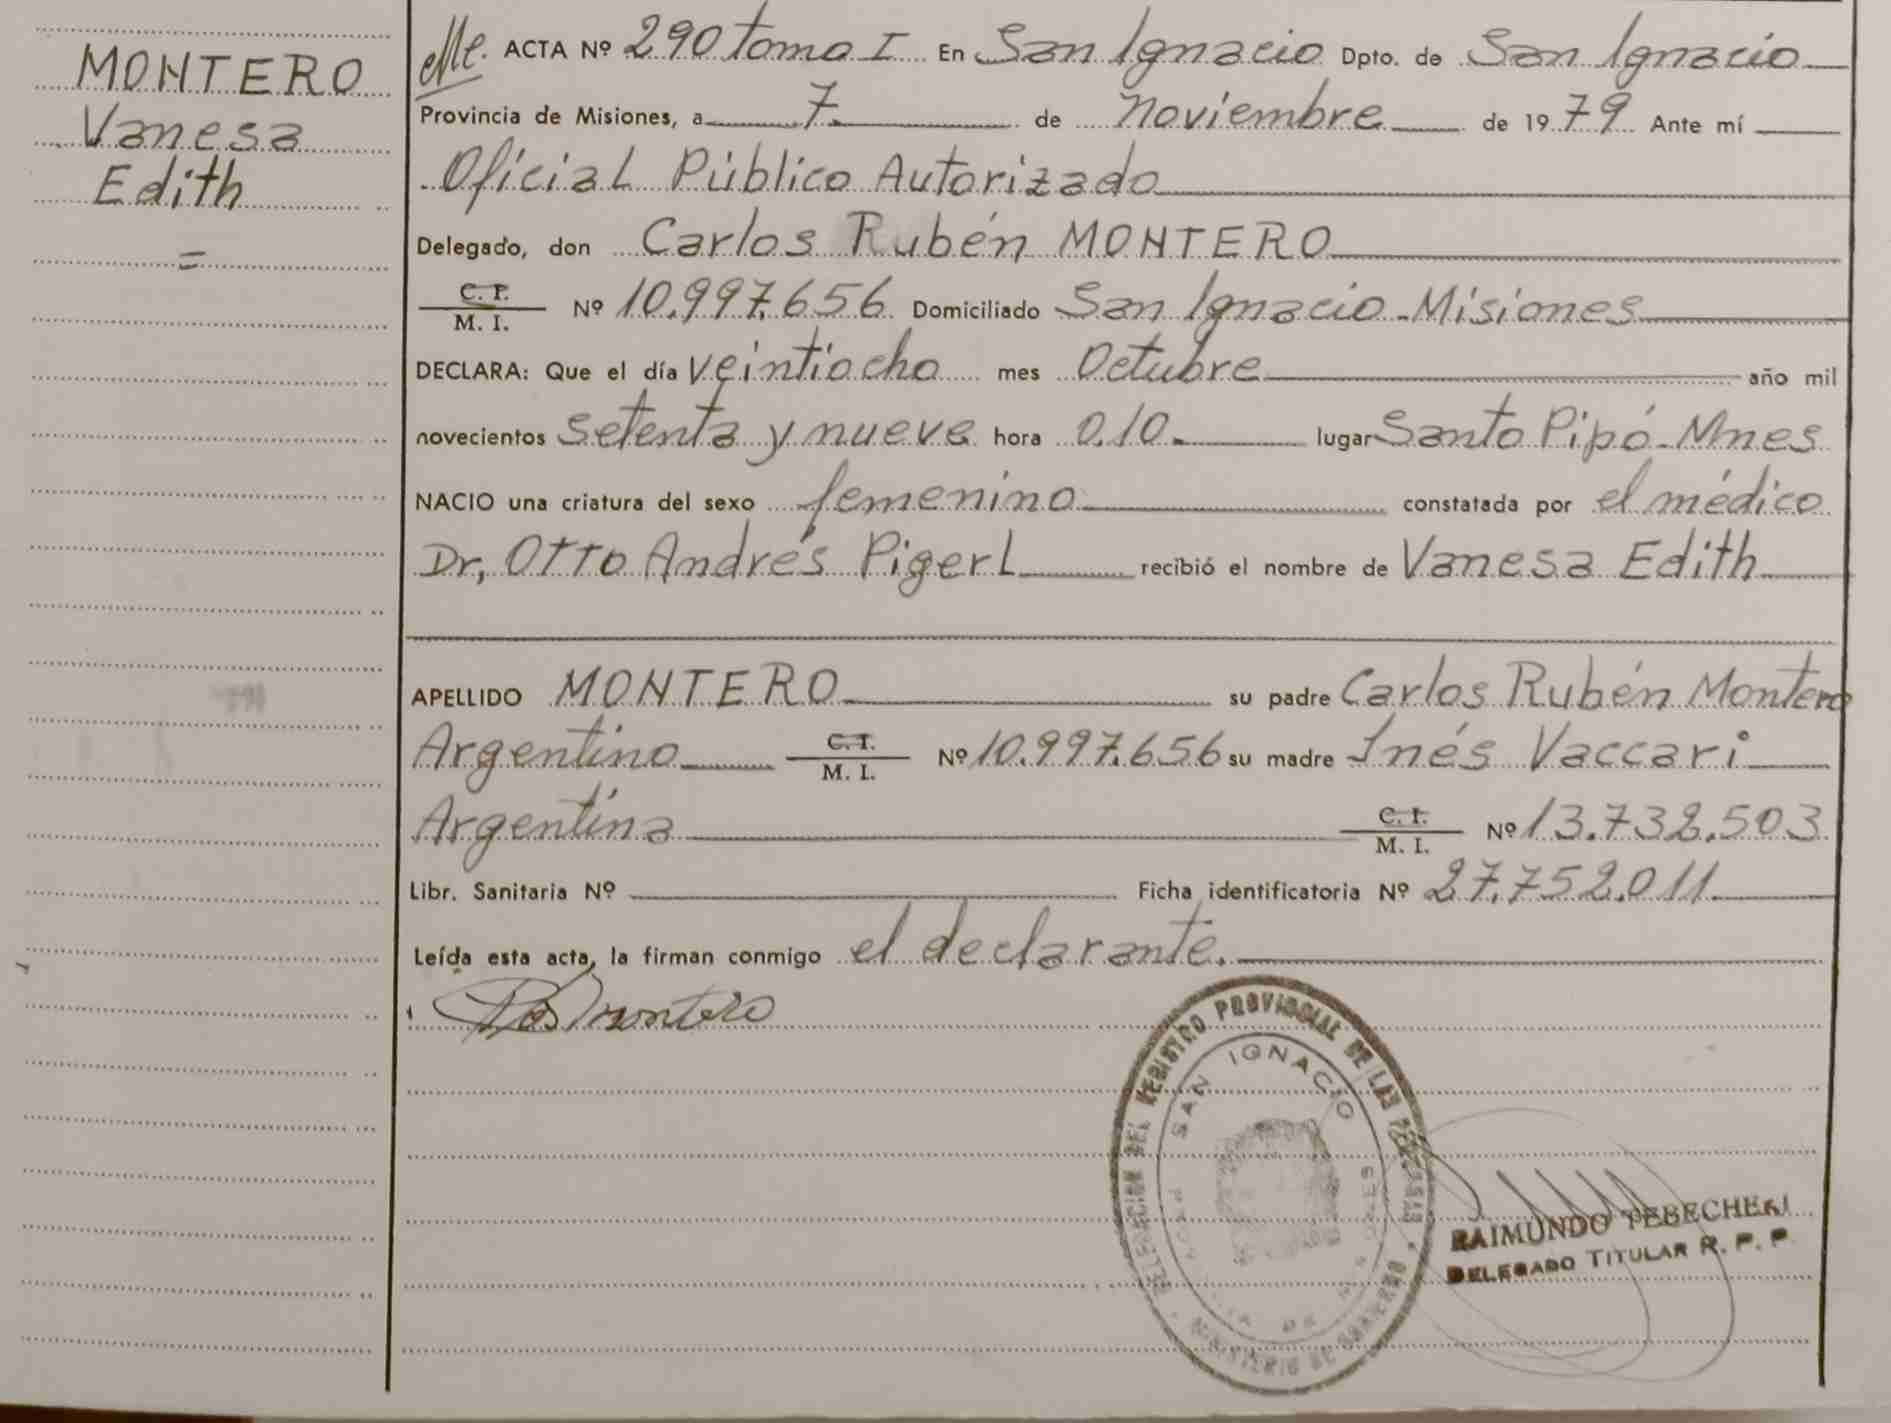 MONTERO
Vanesa
Edith
=
ACTA Nº 290 tomo I En San Ignacio Dpto. de San Ignacio
Provincia de Misiones, a 7. de noviembre de 1979 Ante mí
Oficial Público Autorizado
Delegado, don Carlos Rubén MONTERO
C. I.
M. I. Nº 10.997.656 Domiciliado San Ignacio - Misiones
DECLARA: Que el día veintiocho mes Octubre año mil
novecientos setenta y nueve hora 0.10. lugar Santo Pipó - Mnes
NACIO una criatura del sexo femenino constatada por el médico
Dr, Otto Andrés Pigerl recibió el nombre de Vanesa Edith
APELLIDO MONTERO su padre Carlos Rubén Montero
Argentino C. I. M. I. Nº 10.997.656 su madre Inés Vaccari
Argentina C. I. M. I. Nº 13.732.503
Libr. Sanitaria Nº Ficha identificatoria Nº 27.752.011
Leída esta acta, la firman conmigo el declarante.
DELEGACION DEL REGISTRO PROVINCIAL DE LAS PERSONAS
SAN IGNACIO
MINISTERIO DE GOBIERNO
RAIMUNDO
DELEGADO TITULAR R. P. P.